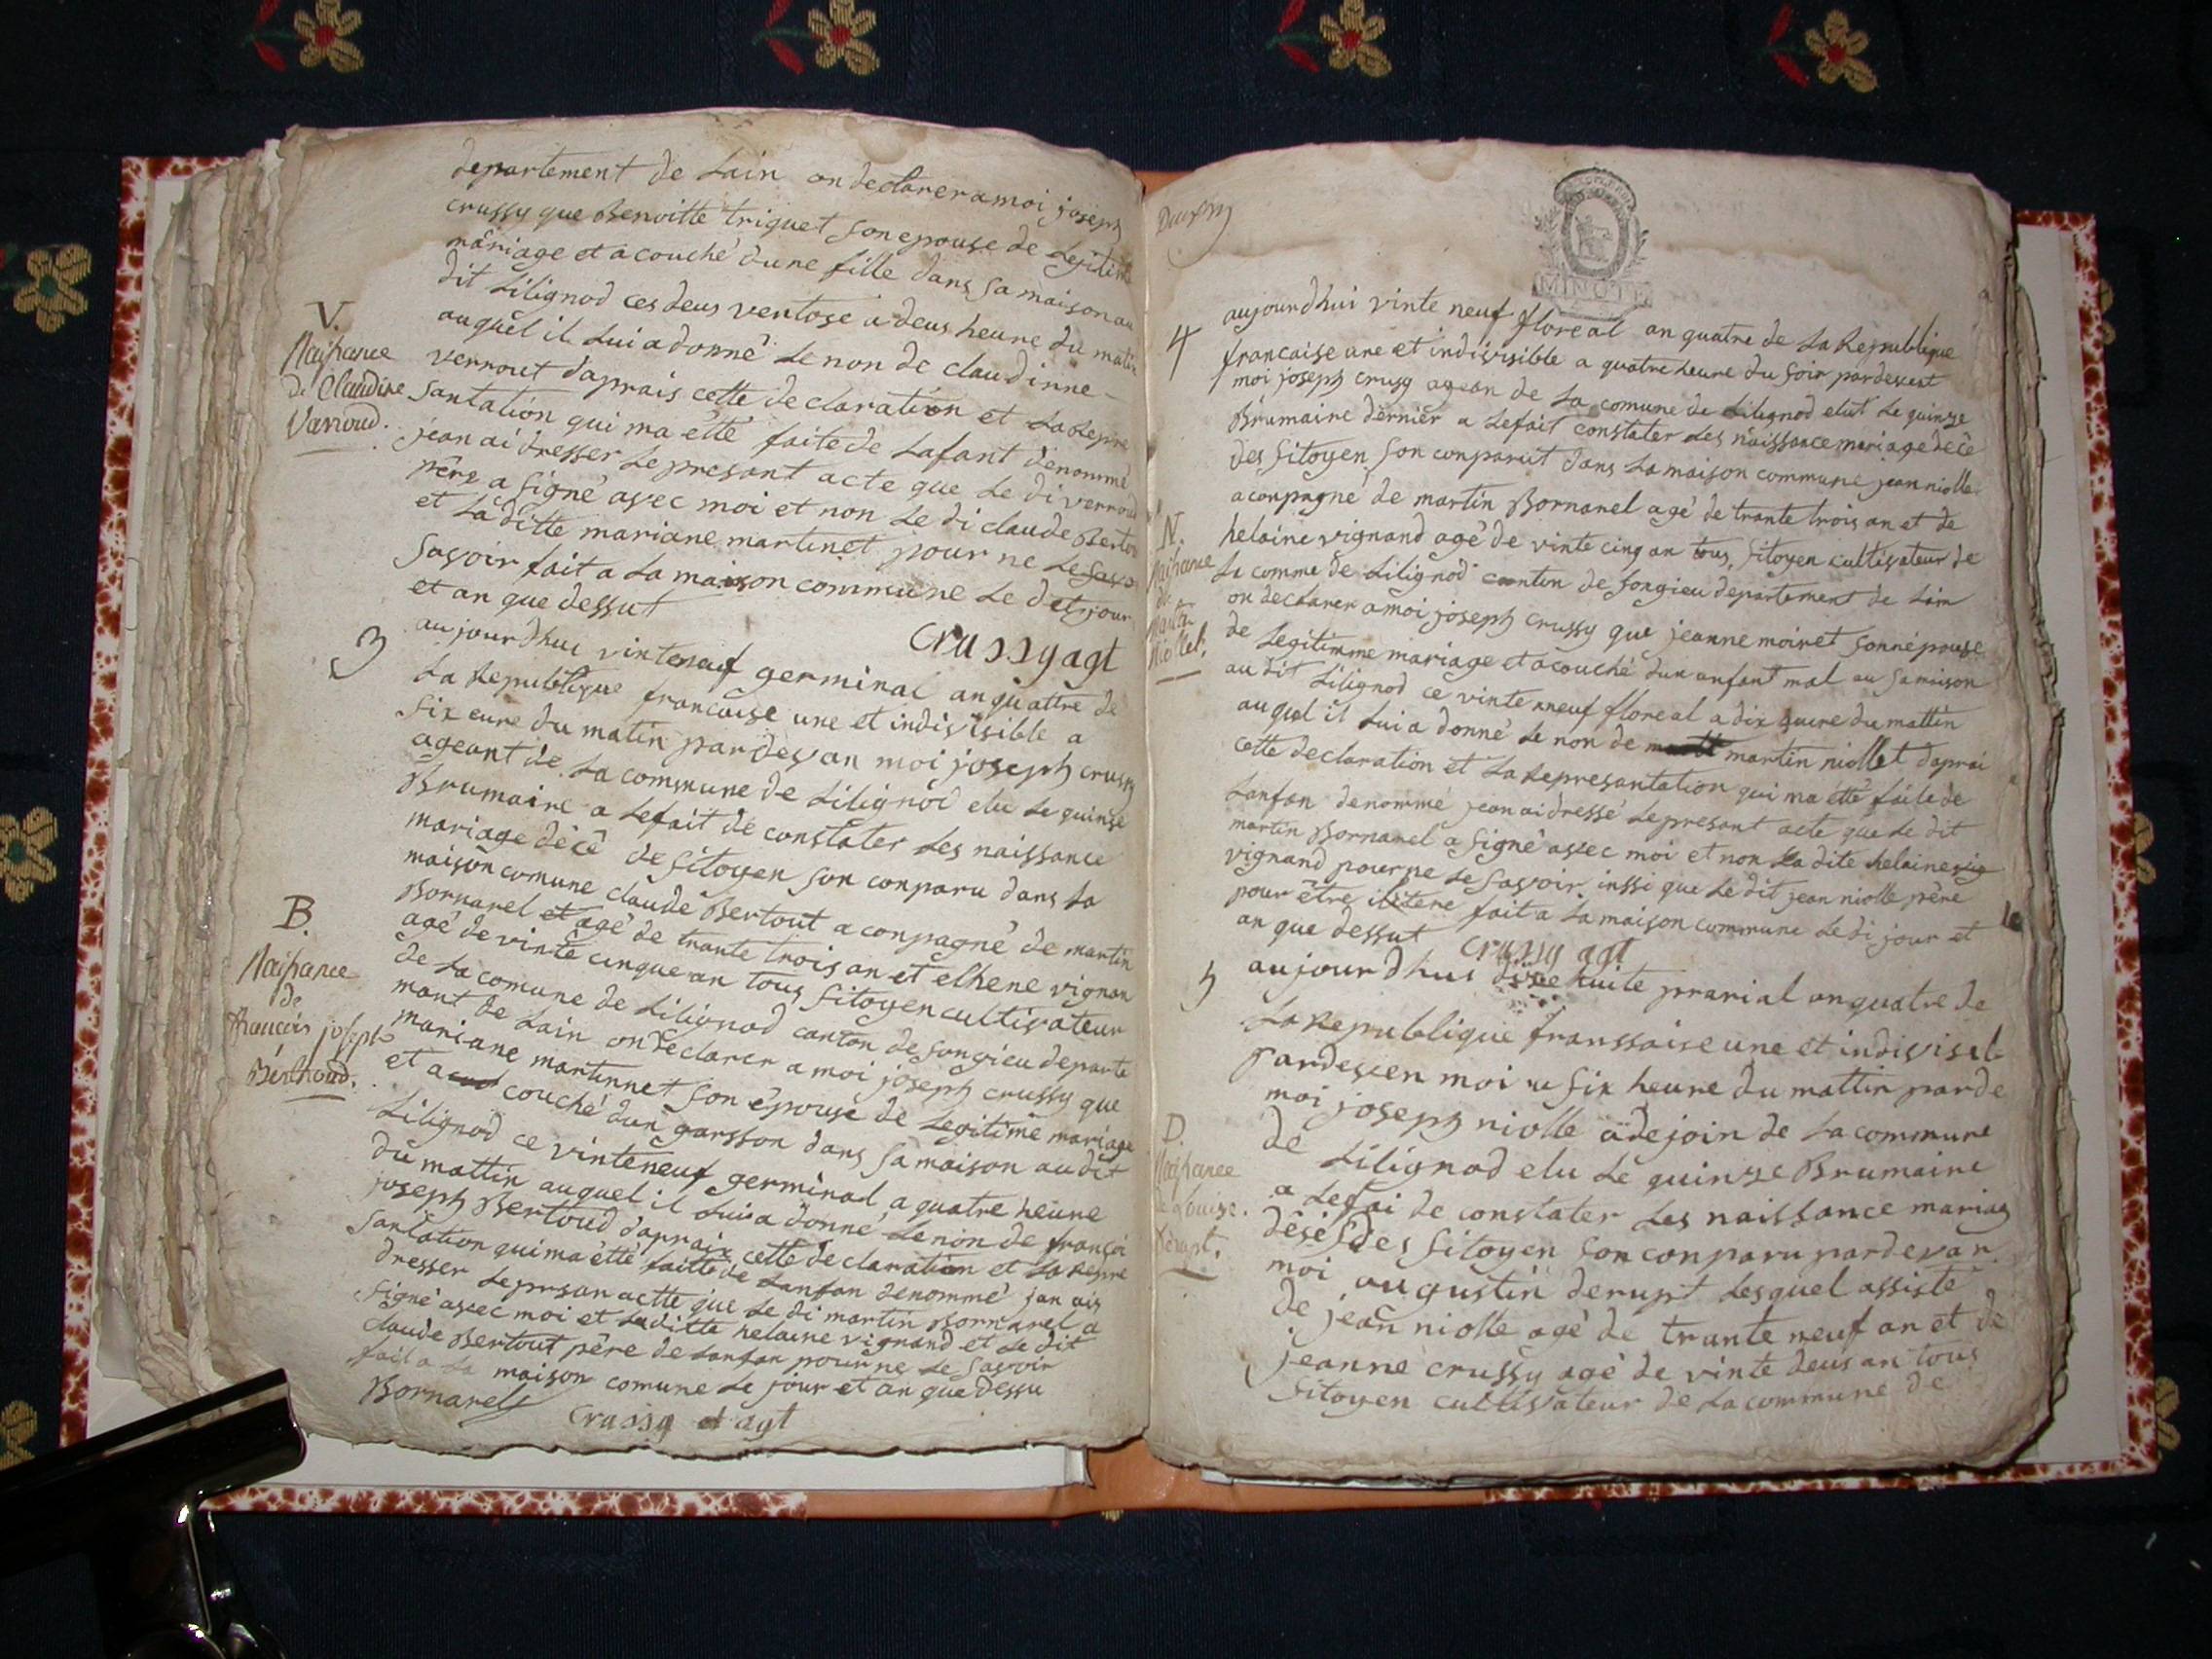 departement de Lain on declarer a moi joseph
crussy que Benoitte triquet son epouse de Legitim
mariage et a couché dune fille dans sa maison au
dit Lilignod ces deus ventose a deus heure du matin
auquel il Lui a donné Le non de claudinne
verrout daprais cette declaration et La Repre
santation qui ma etté faite de Lafant denommé
jean ai dresser Le presant acte que Le di verroud
père a signé avec moi et non Le di claude Bertou
et La ditte mariane martinet pour ne Le savo
savoir fait a La maison commune Le dit jour
et an que dessut
crussy agt
V.
Naissance
de Claudine
Verroud.
3
aujourdhui vinteneuf germinal an quattre de
La Republique francaise une et indivisible a
six eure du matin pardevan moi joseph crussy
ageant de La commune de Lilignod elu Le quinse
Brumaire a Lefait de constater Les naissance
mariage décé de sitoyen son conparu dans La
maison comune claude Bertout a conpagné de martin
Bornarel et agé de trante trois an et elhene vignan
agé de vinte cinque an tous sitoyen cultivateur
de La comune de Lilignod canton de songieu departe
mant de Lain on declarer a moi joseph crussy que
mariane martinnet son épouse de Legitime mariage
et a couché dun garsson dans sa maison au dit
Lilignod ce vinteneuf germinal a quatre heure
du mattin auquel il Lui a donné Le non de françoi
joseph Bertoud daprais cette declaration et La Repre
santation qui ma etté faitte de Lanfan denommé jan ais
dresser Le presan actte que Le di martin Bornarel a
signé avec moi et La ditte helaine vignand et Le dit
claude Bertout père de Lanfan pour ne Le savoir
fait a La maison comune Le jour et an que dessu
Bornarel
crussy agt
B.
Naissance
de
françois joseph
Berthoud.
MINUTE
4
aujourdhui vinte neuf floreal an quatre de La Republique
francaise une et indivisible a quatre heure du soir pardevent
moi joseph crussy agean de La comune de Lilignod elut Le quinze
Brumaire dernier a Lefait constater Les naissance mariage décê
des sitoyen son conparut dans La maison commune jean niolle
aconpagné de martin Bornarel agé de trante trois an et de
helaine vignand agé de vinte cinq an tous sitoyen cultivateur de
La comme de Lilignod canton de songieu departement de Lain
on declarer a moi joseph crussy que jeanne moiret sonnépouse
de Legitimme mariage et a couché dun anfant mal au sa maison
au dit Lilignod ce vinte nneuf floreal a dix heure du mattin
auquel il Lui a donné Le non de martin niollet daprai
cette declaration et La Represantation qui ma etté faite de
Lanfan denommé jean ai dressé Le presant acte que Le dit
martin Bornarel a signé avec moi et non La dite helaine vig
vignand pour ne Le savoir inssi que Le dit jean niolle père
pour être ilitere fait a La maison commune Le di jour et
an que dessut
crussy agt
N.
Naissance
de
Martin
Niollet.
5
aujourdhui dixe huite prarial an quatre de
La Republique franssaise une et indivisibl
pardesven moi a six heure du mattin parde
moi joseph niolle adejoin de La commune
de Lilignod elu Le quinze Brumaire
a Lefai de constater Les naissance mariag
désé des sitoyen son conparu pardevan
moi augustin derupt Lesquel assisté
de jean niolle agé de trante neuf an et de
jeanne crussy agé de vinte deus an tous
sitoyen cultivateur de La commune de
D.
Naissance
de Louise.
Derupt.